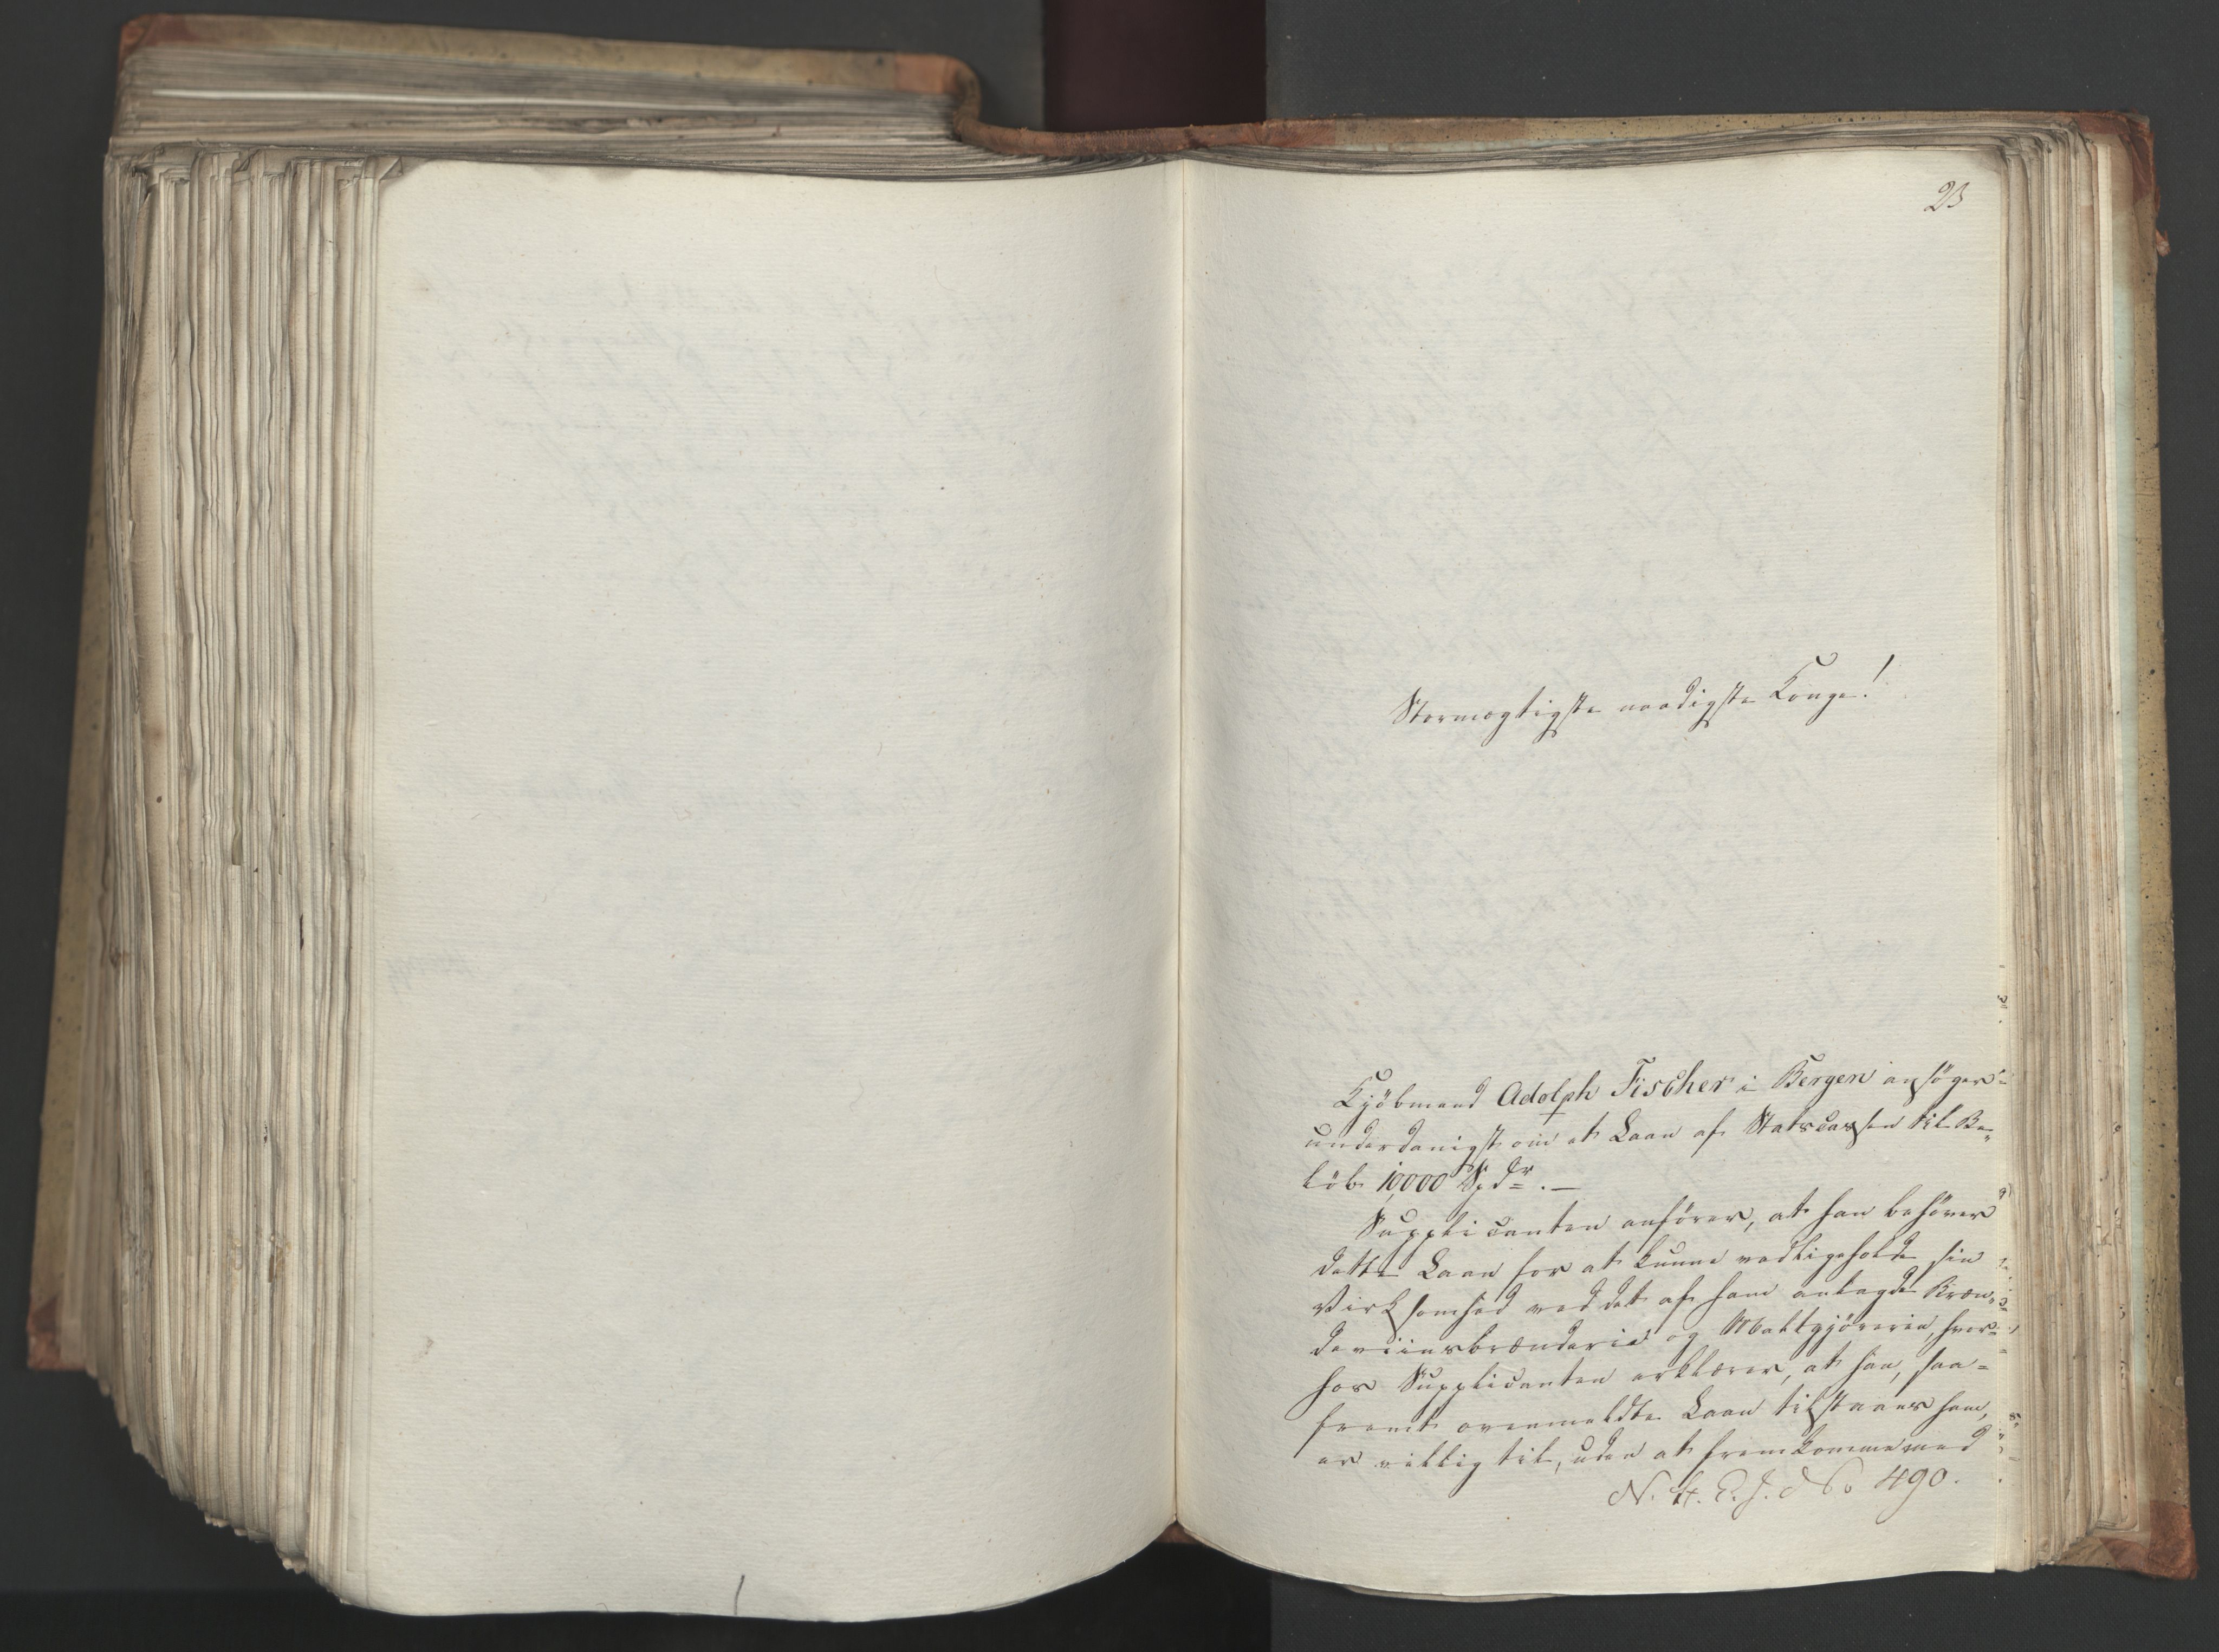 23
Stormægtigste naadigste Konge!
Kjöbmand Adolph Fischer i Bergen ansöger
underdanigst om et Laan af Statscassen til Be„
löb 10,000 Spdr. —
Supplicanten anförer, at han behöver
dette Laan for at kunne vedligeholde sin
Virksomhed ved det af ham anlagde Bræn„
deviinsbrænderie og Maltgjörerie, hvor=
hos Supplicanten erklærer, at han, saa=
fremt ovenmeldte Laan tilstaaes ham,
er villig til, uden at fremkomme med
N. H. E. J. No 490.